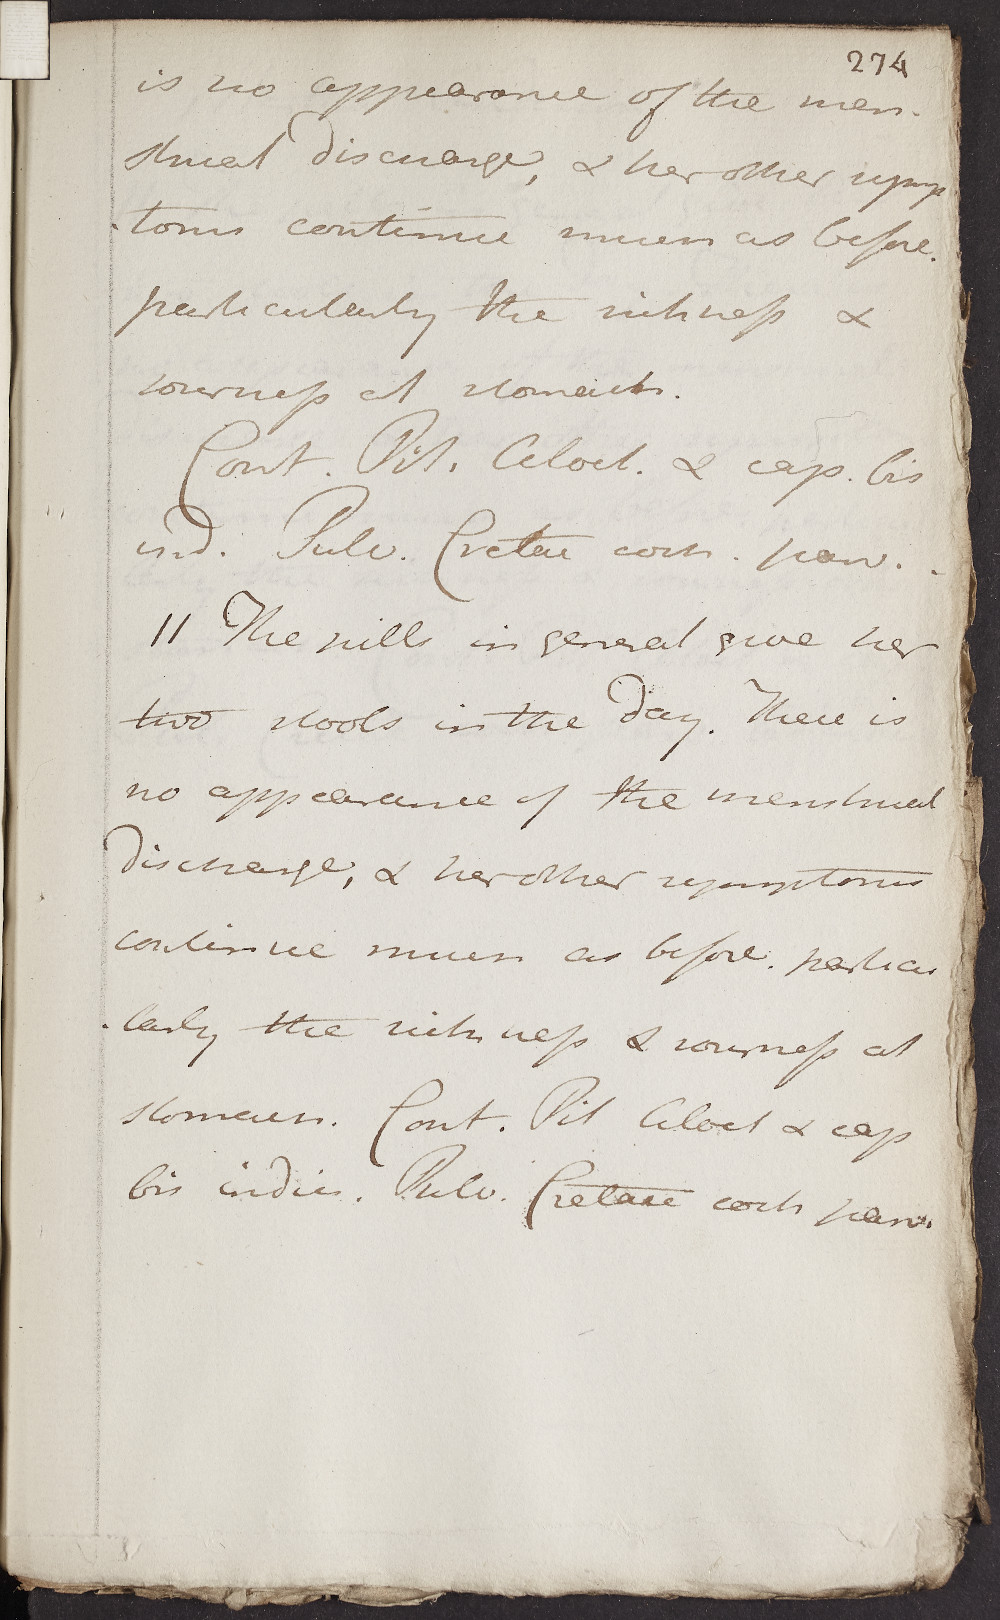 274
is no appearance of the men-
strual discharge, & her other symp
-toms continue much as before.
particularly the sickness &
sourness at stomach.
Cont. Pil. Aloet. & cap. bis
ind. Pulv. Cretae coch. parv.
11 The pills in general give her
two stools in the day. There is
no appearance of the menstrual
discharge, & her other symptoms
continue much as before. particu
-larly the sickness & sourness at
stomach. Cont. Pil Aloet & cap
bis indies. Pulv. Cretae coch parv.